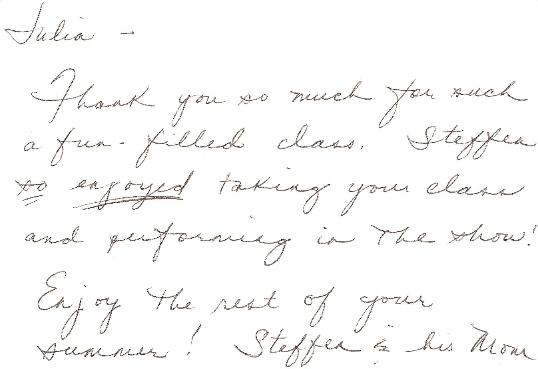 Julia -
Thank you so much for such
a fun-filled class. Steffen
so enjoyed taking your class
and performing in the show!
Enjoy the rest of your
summer! Steffen & his Mom